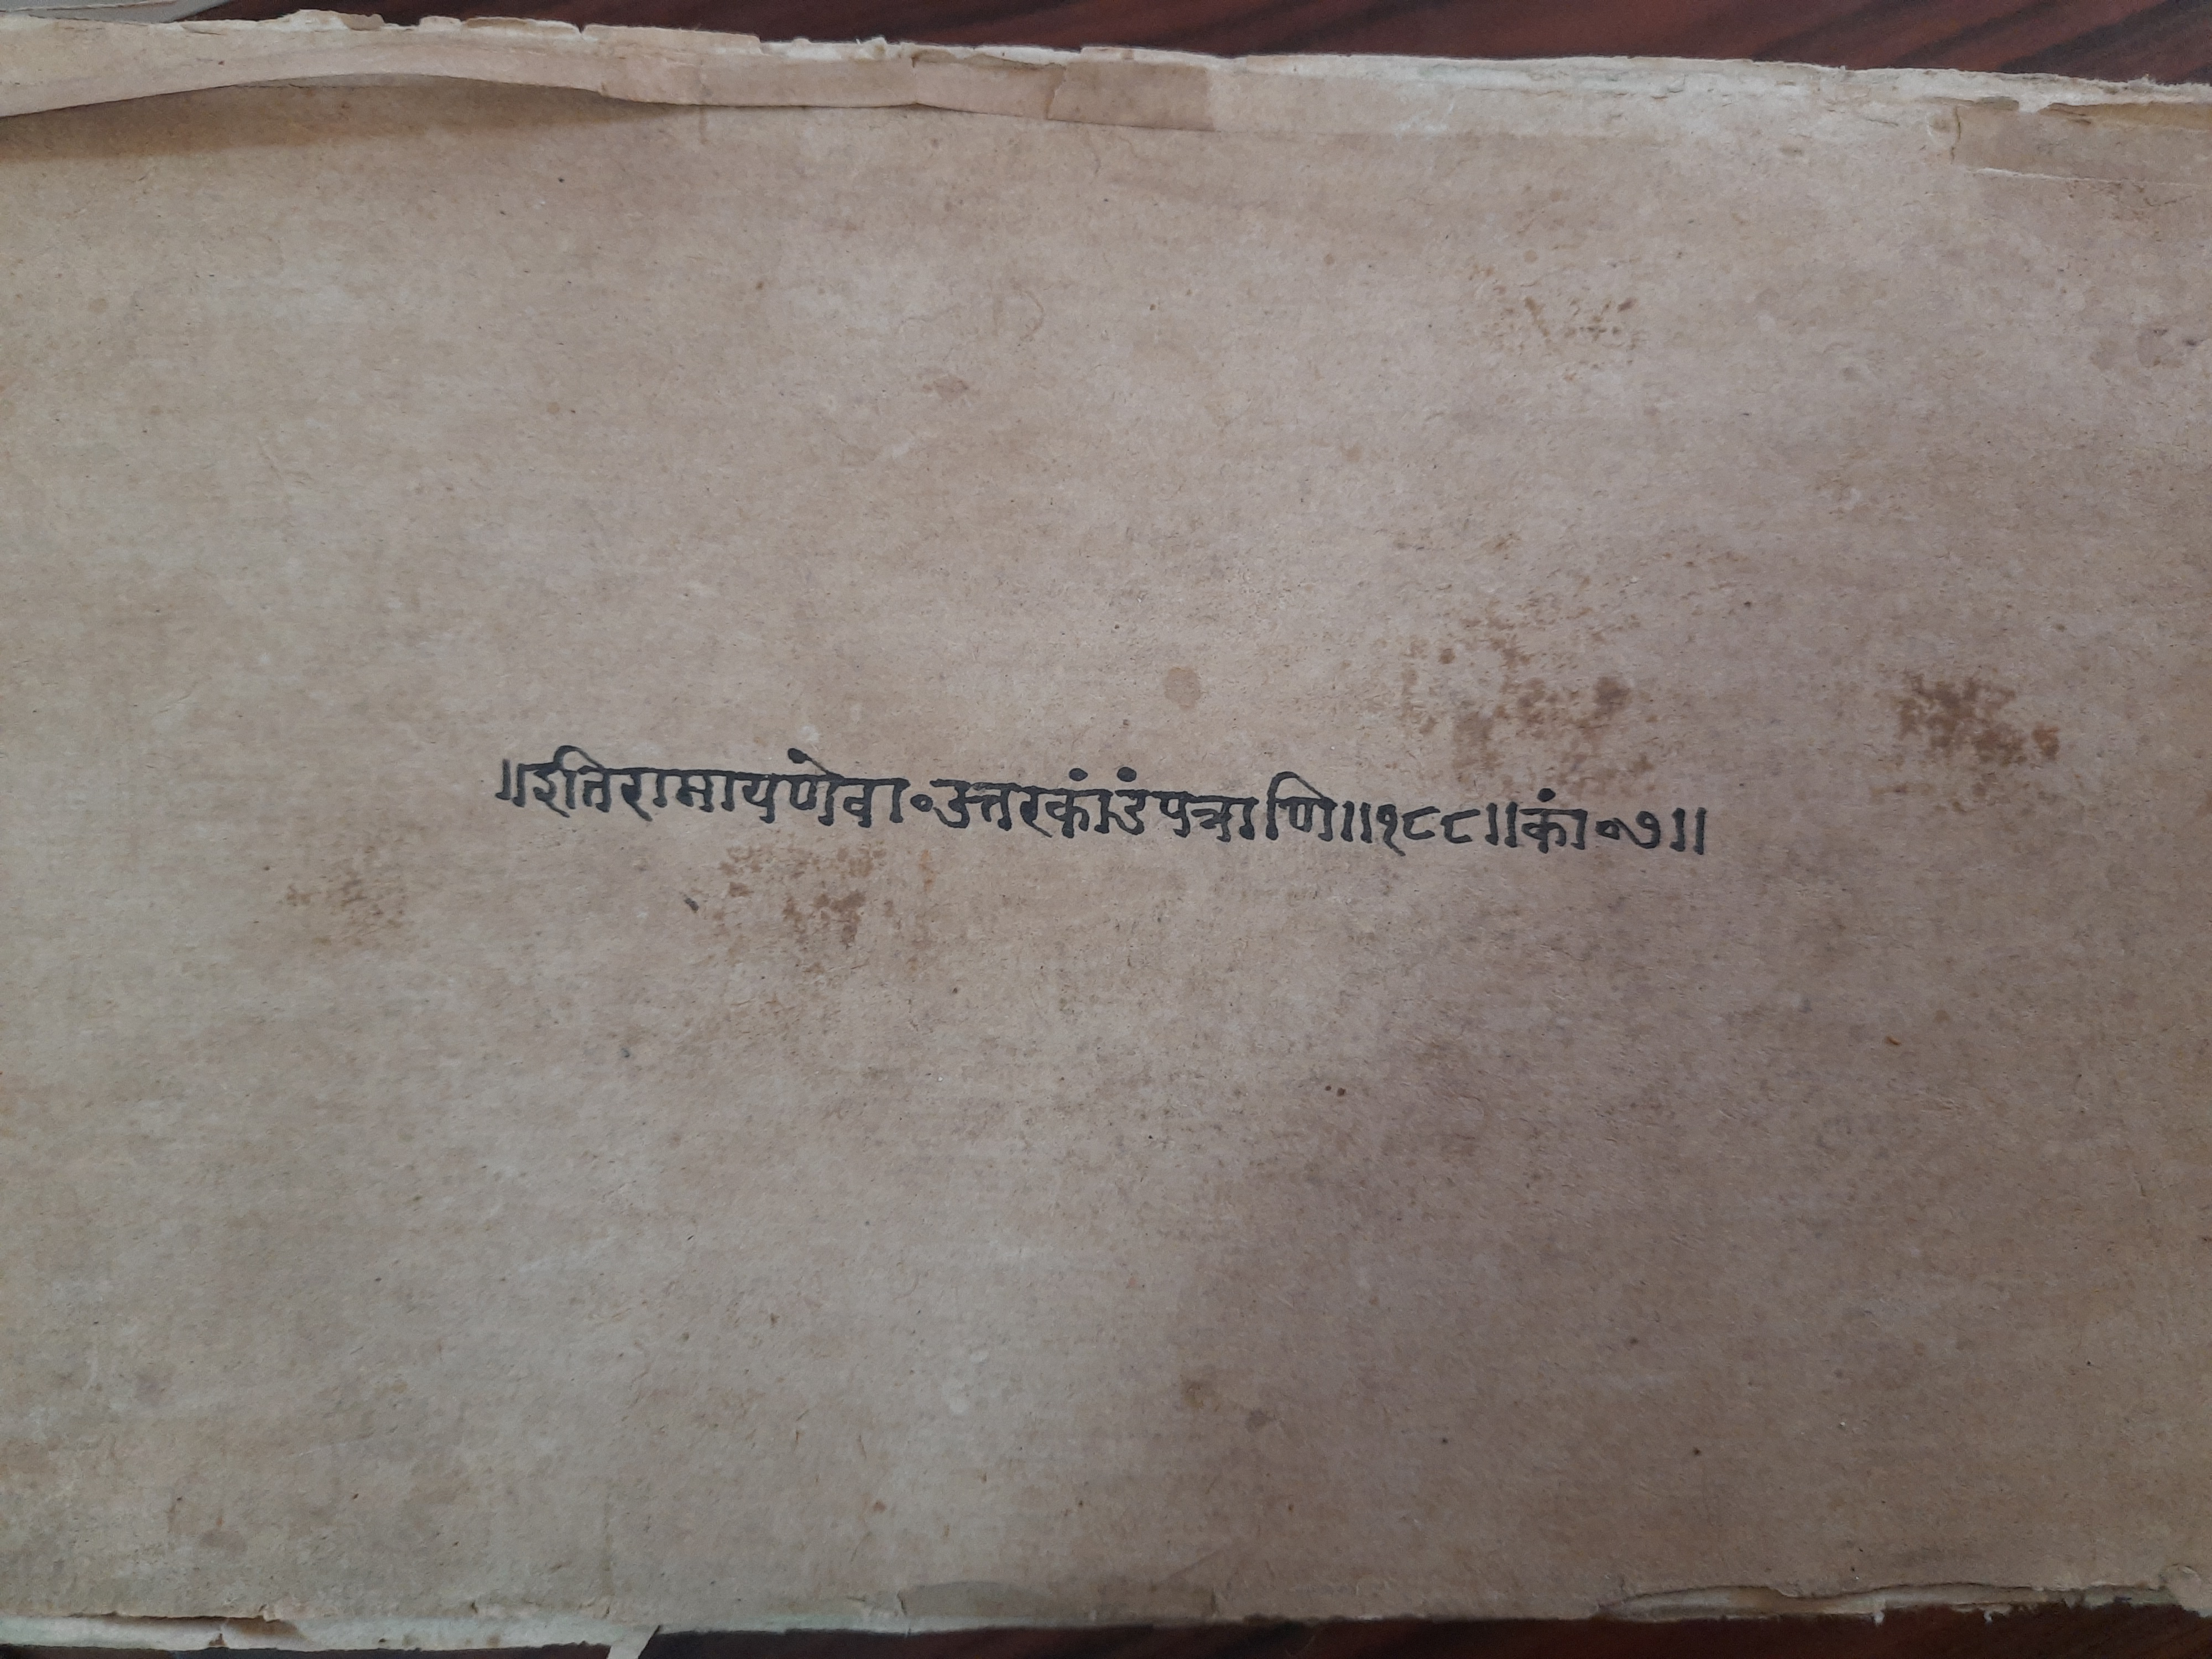 ॥इतिरामायणेवा॰उत्तरकांडंपत्राणि॥१८८॥कां॰७॥